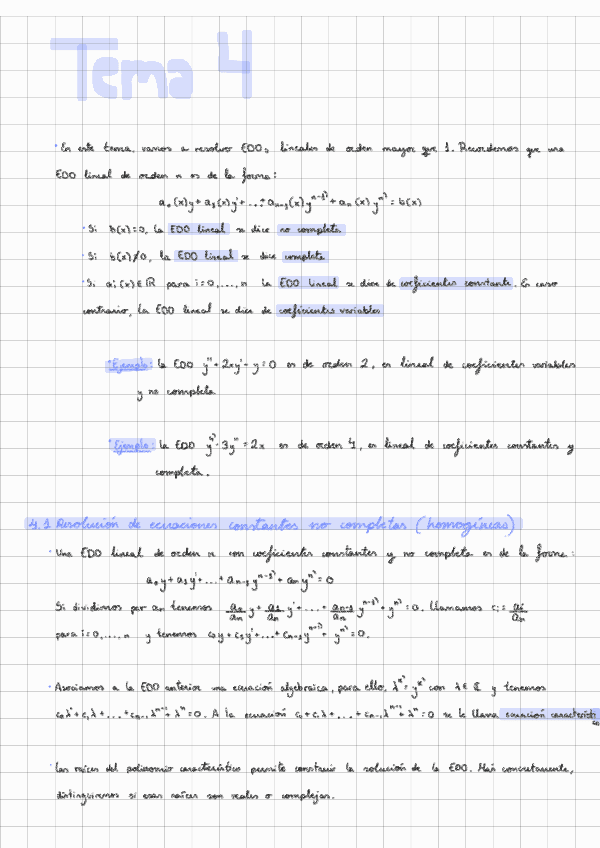 Tema 4
· En este tema, vamos a resolver EDOs lineales de orden mayor que 1. Recordemos que una
EDO lineal de orden n es de la forma:
a₀(x)y + a₁(x)y' + ... + aₙ₋₁(x)yⁿ⁻¹⁾ + aₙ(x)yⁿ⁾ = b(x)
· Si b(x)=0, la EDO lineal se dice no completa
· Si b(x)≠0, la EDO lineal se dice completa
· Si aᵢ(x)∈ℝ para i=0,...,n la EDO lineal se dice de coeficientes constante. En caso
contrario, la EDO lineal se dice de coeficientes variables
· Ejemplo: la EDO y''+2xy'-y=0 es de orden 2, es lineal de coeficientes variables
y no completa
· Ejemplo: la EDO y⁴⁾-3y''=2x es de orden 4, es lineal de coeficientes constantes y
completa.
4.1 Resolución de ecuaciones constantes no completas (homogéneas)
· Una EDO lineal de orden n con coeficientes constantes y no completa es de la forma:
a₀y + a₁y' + ... + aₙ₋₁yⁿ⁻¹⁾ + aₙyⁿ⁾ = 0
Si dividimos por aₙ tenemos a₀/aₙ y + a₁/aₙ y' + ... + aₙ₋₁/aₙ yⁿ⁻¹⁾ + yⁿ⁾ = 0. Llamamos cᵢ = aᵢ/aₙ
para i=0,...,n y tenemos c₀y + c₁y' + ... + cₙ₋₁yⁿ⁻¹⁾ + yⁿ⁾ = 0.
· Asociamos a la EDO anterior una ecuación algebraica, para ello, λ = y con λ∈ℂ y tenemos
c₀λ⁰ + c₁λ + ... + cₙ₋₁λⁿ⁻¹ + λⁿ = 0. A la ecuación c₀ + c₁λ + ... + cₙ₋₁λⁿ⁻¹ + λⁿ = 0 se le llama ecuación característi
· Las raíces del polinomio característico permite construir la solución de la EDO. Más concretamente,
distinguiremos si esas raíces son reales o complejas.